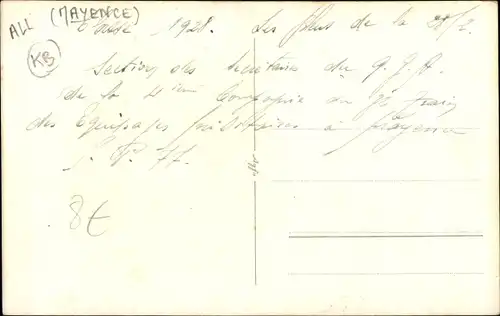 ALL (MAYENCE)
KB
1928. Les plus de la 28/2
Section des secrétaires du Q.G.A.
de la 4ème Compagnie du Train
des Equipages Militaires à Mayence
S.P. 77.
8€